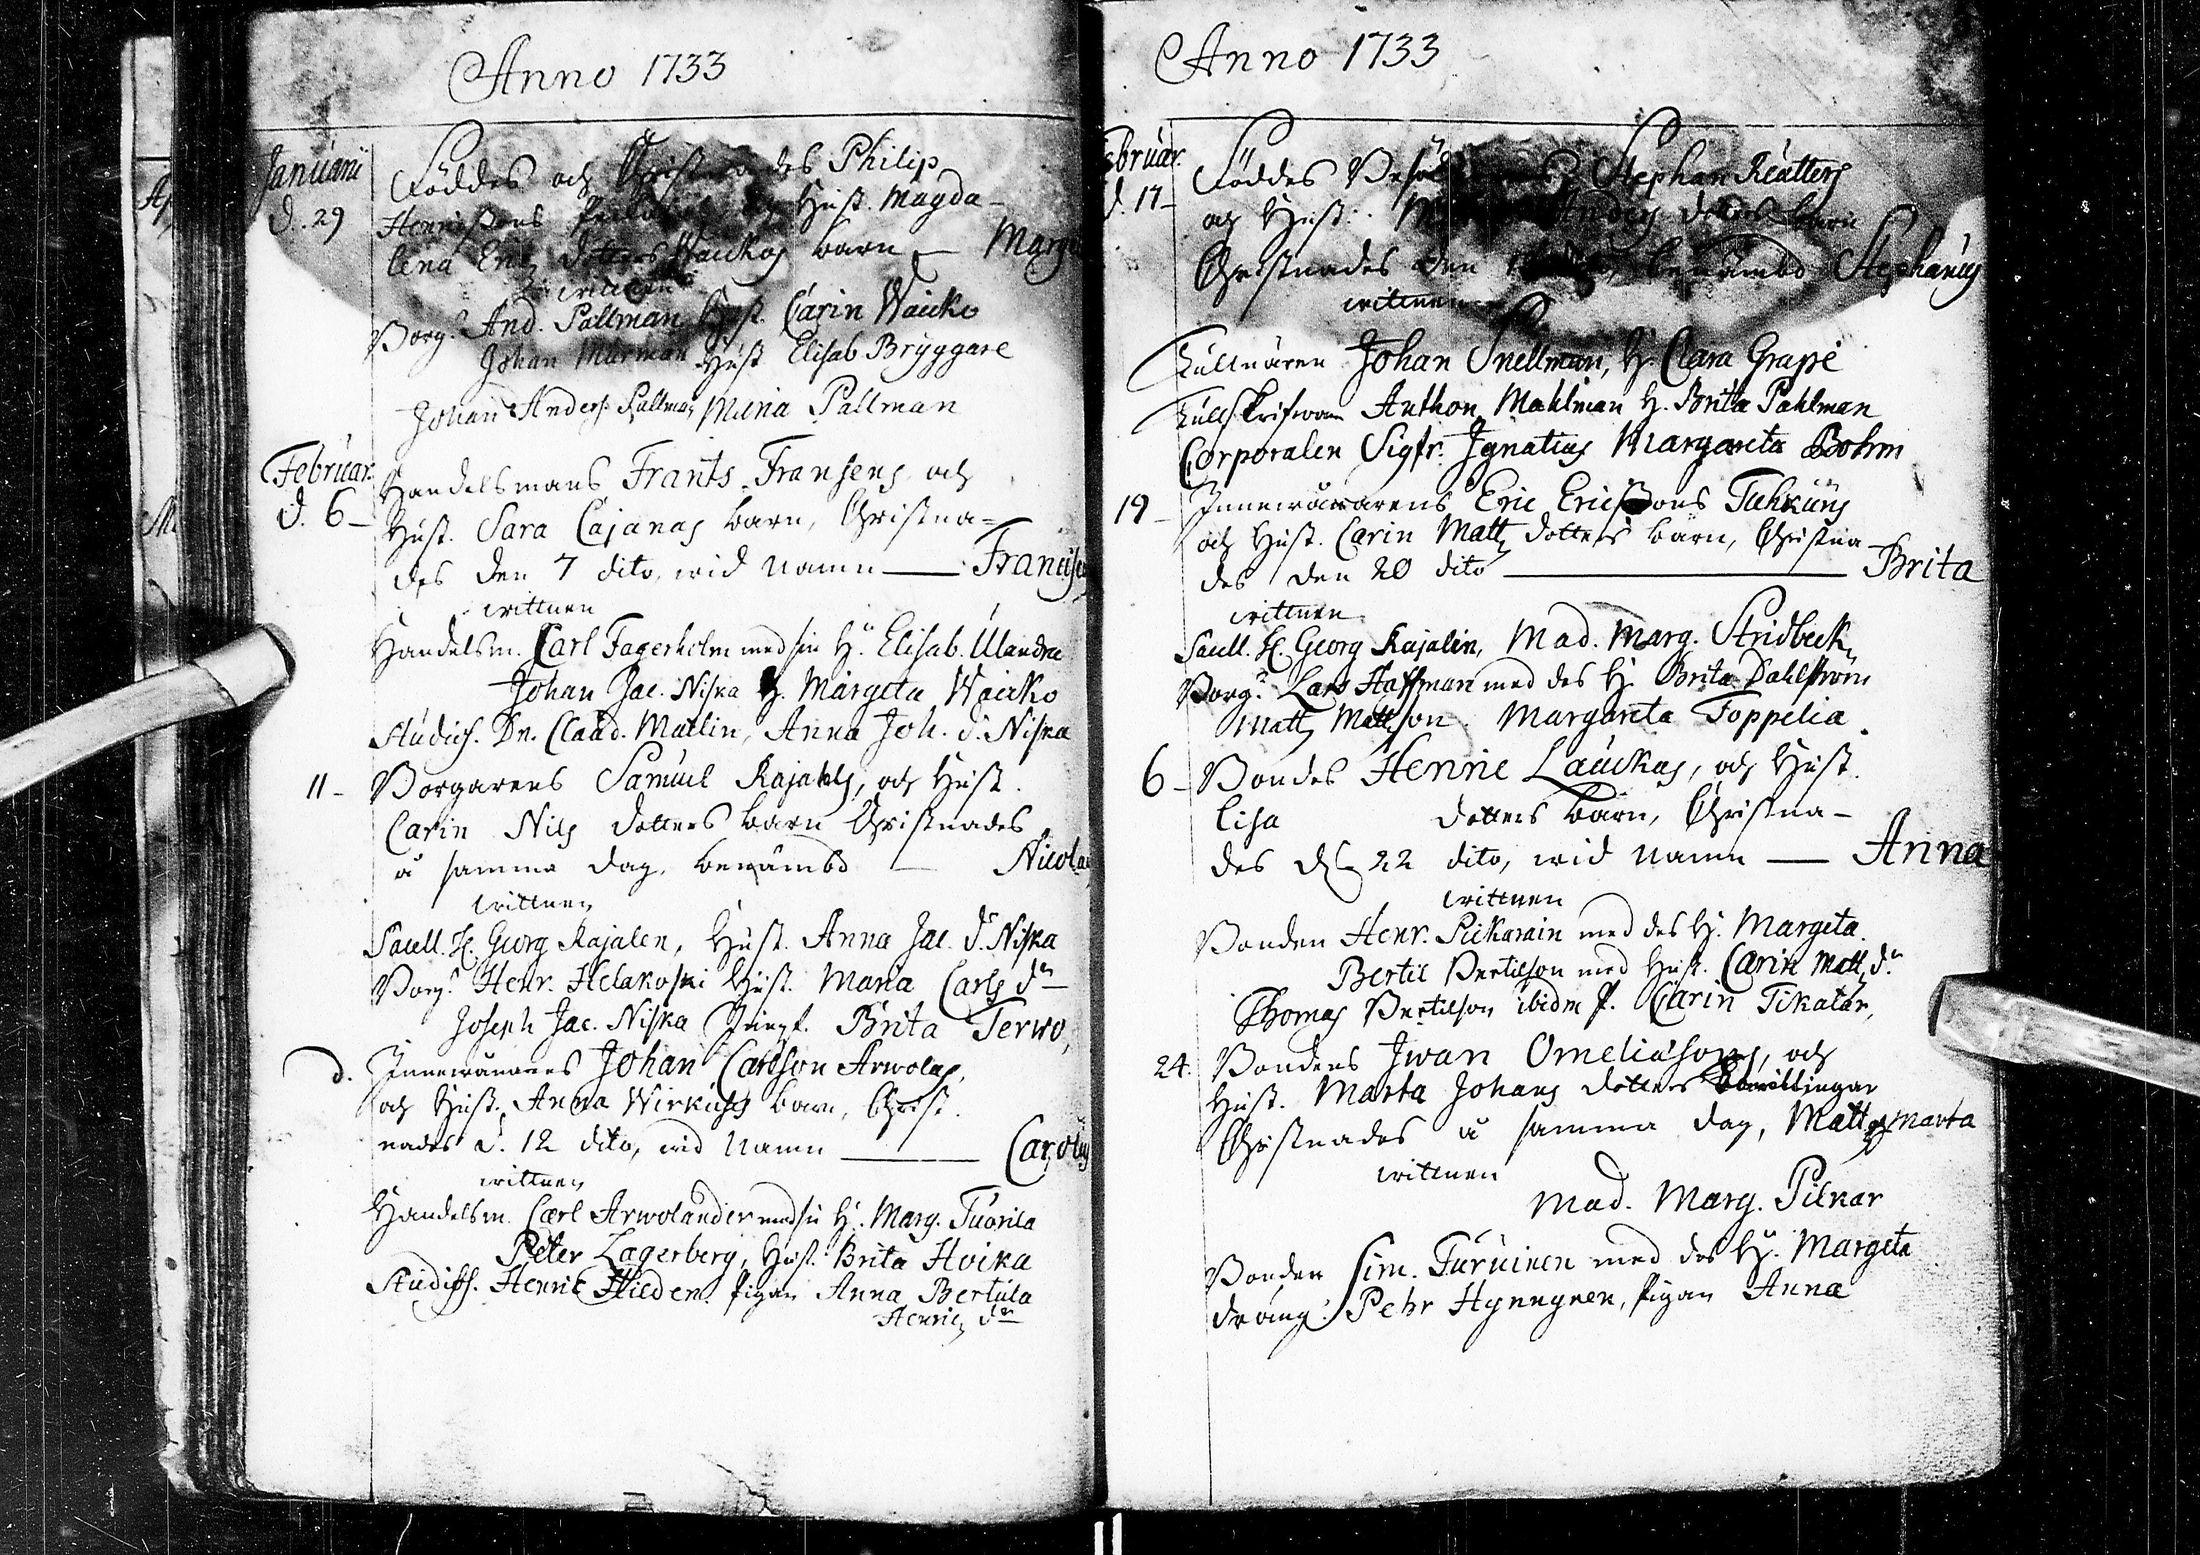 Anno 1733
Januarii
d. 29
Föddes och Christnades Philip
Henrissons Hust. Magda-
lena dotters Waickos barn — Marg
wittnen
Borg. And. Pallman Hust. Carin Waicko
Johan Murman Hust Elisab Bryggare
Johan Anders. Pallman Pallman
Februar.
d. 6 –
Handelsmans Frants Fransens och
Hust. Sara Cajanas barn, Christna=
des den 7 dito, wid namn — Francisc
wittnen
Handelsm. Carl Fagerholm med sin H. Elisab. Ulandra
Johan Jac. Niska H. Margeta Waicko
Studios. Dn. Claud. Matlin, Anna Joh. d. Niska
11 – Borgarens Samuel, och Hust.
Carin Nils dotters barn Christnades
å samma dag, benämbd — Nicola
wittnen
H. Georg Kajalen, Hust. Anna Jac. d. Niska
Borg. Henr. Helakoski Hust. Maria Carls dr
Joseph Jac. Niska Brita Terwo,
d. Innewånares Johan Carlsson Arwolas,
och Hust. Anna barn, Christ.
nades d. 12 dito, wid Namn — Carolus
wittnen
Handelsm. Carl Arwolander med sin H. Marg. Tuorila
Peter Lagerberg, Hust. Brita Hoika
Studios. Henric Hilden. Pigan Anna Bertula
Henric dr
Anno 1733
ebruar.
d. 17 –
Föddes Stephan
och Hust. dotters barn
Christnades den benämbd Stephanus
wittnen
Tullnären Johan Snellman, H. Clara Grape
Tullskrifwaren Anthon Mahlman H. Brita Pahlman
Corporalen Sigfr. Ignatius Margareta Bohm
19 – Innewånarens Eric Ericssons
och Hust. Carin Matts dotters barn, Christna
des den 20 dito — Brita
wittnen
H. Georg Kajalin, Mad. Marg. Stridbeck
Borg. Lars Haffman med des H. Brita Dahlström
Matts Mattson. Margareta Toppelia.
6 – Bondes Henric Lauckas, och Hust.
Lisa dotters barn, Christna-
des d. 22 dito, wid namn — Anna
wittnen
Bonden Henr. Pickarain med des H. Margeta.
Bertil Bertilson med Hust. Carin Matts dr
Thomas Bertilson ibidm P. Carin Tikatar,
24. Bondens Iwan Omeliasons, och
Hust. Marta Johans dotters twillingar
Christnades å samma dag, Matts Marta
wittnen
Mad. Marg. Pilnar
Bonden Sim. Turuinen med des H. Margeta
dräng. Pehr Hynnynen, Pigan Anna